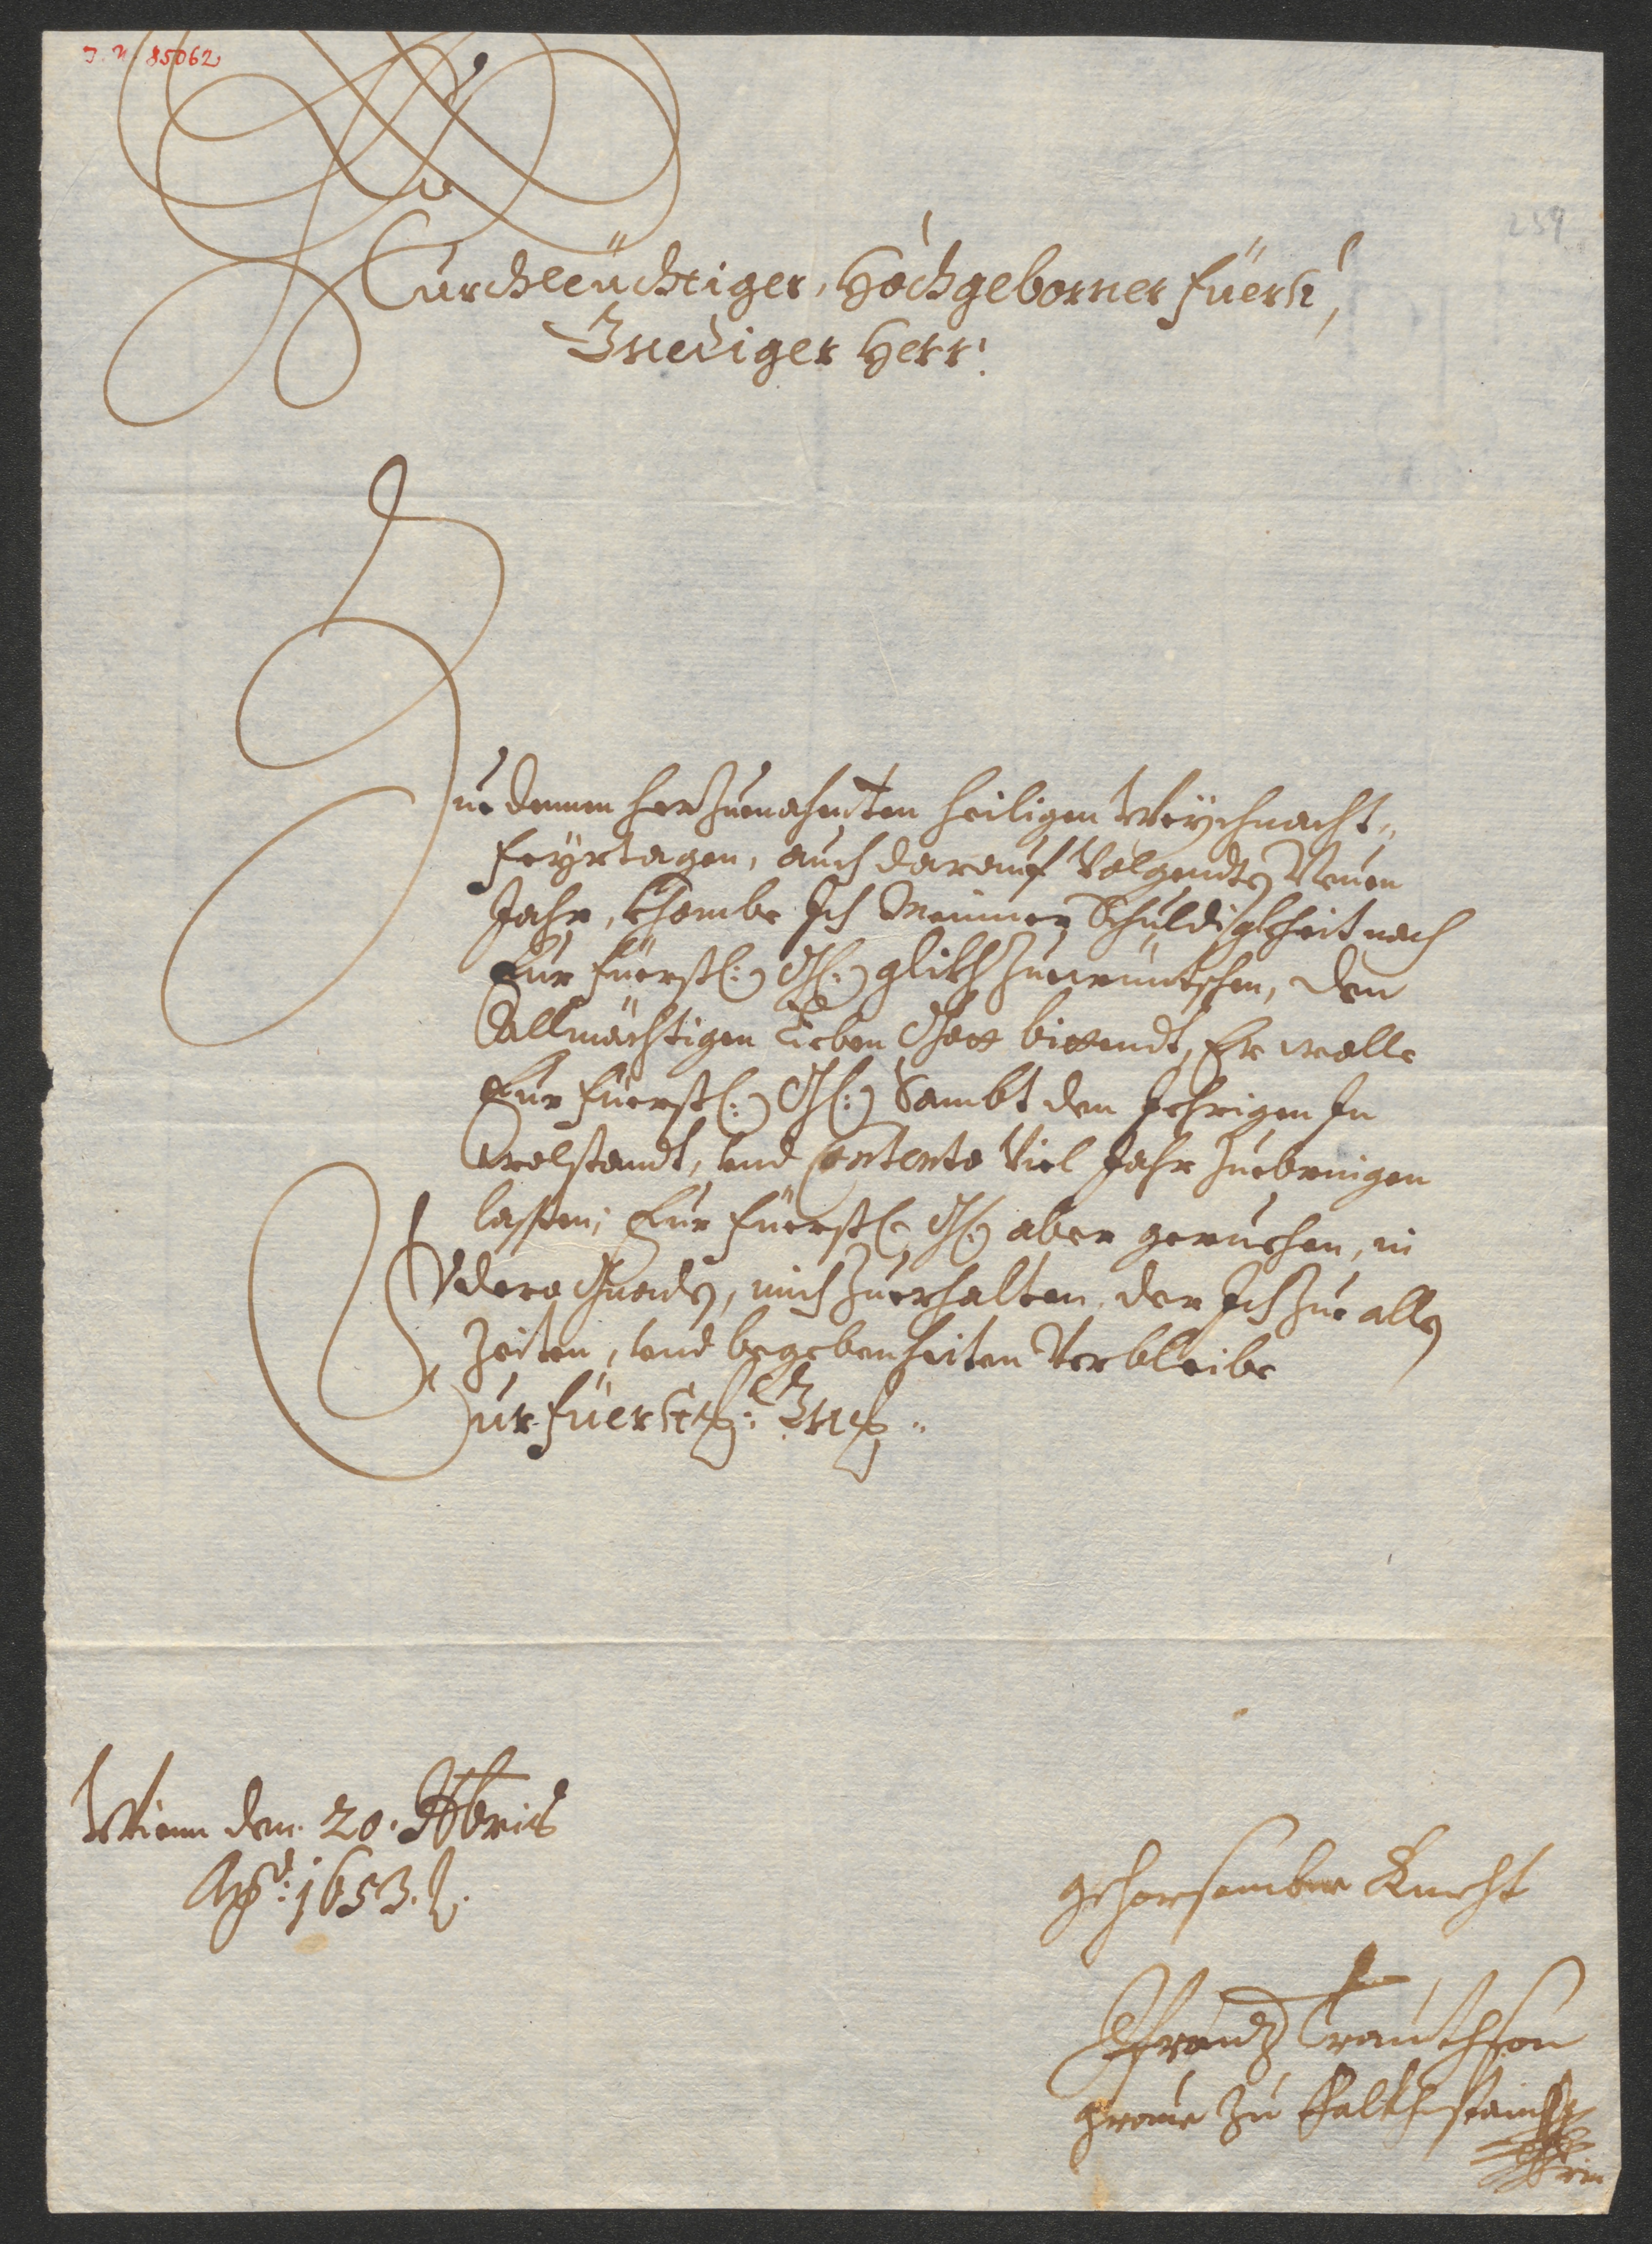 I. N. 85062
239
Durchleüchtiger, Hochgeborner Füerst,
Gnediger Herr!
Zue denen herzuenahenten heiligen Weÿchnacht-
Feÿrtagen, auch darauf Volgendts Neuen
Jahr, khombe Ich Meiner Schuldigkheit nach
Eur Füerstl: Gl: glikh zuewüntschen, den
Allmächtigen Lieben Gott bittendt, Er wolle
Eur Füerstl: Gl: Sambt den Ihrigen In
Wolstandt, vnd Contento Viel Jahr zuebringen
lassen; Eur Füerstl: Gl: aber geruehen, in
dero Gnaden, mich zuerhalten, der Ich zue allen
Zeiten, vnd begebenheiten Verbleibe
Eur Füerstl: Gnl:
Wienn den 20. Xbris
Aō: 1653.
gehorsamber Knecht
Franz Trauthson
Graue zu Falkhenstain